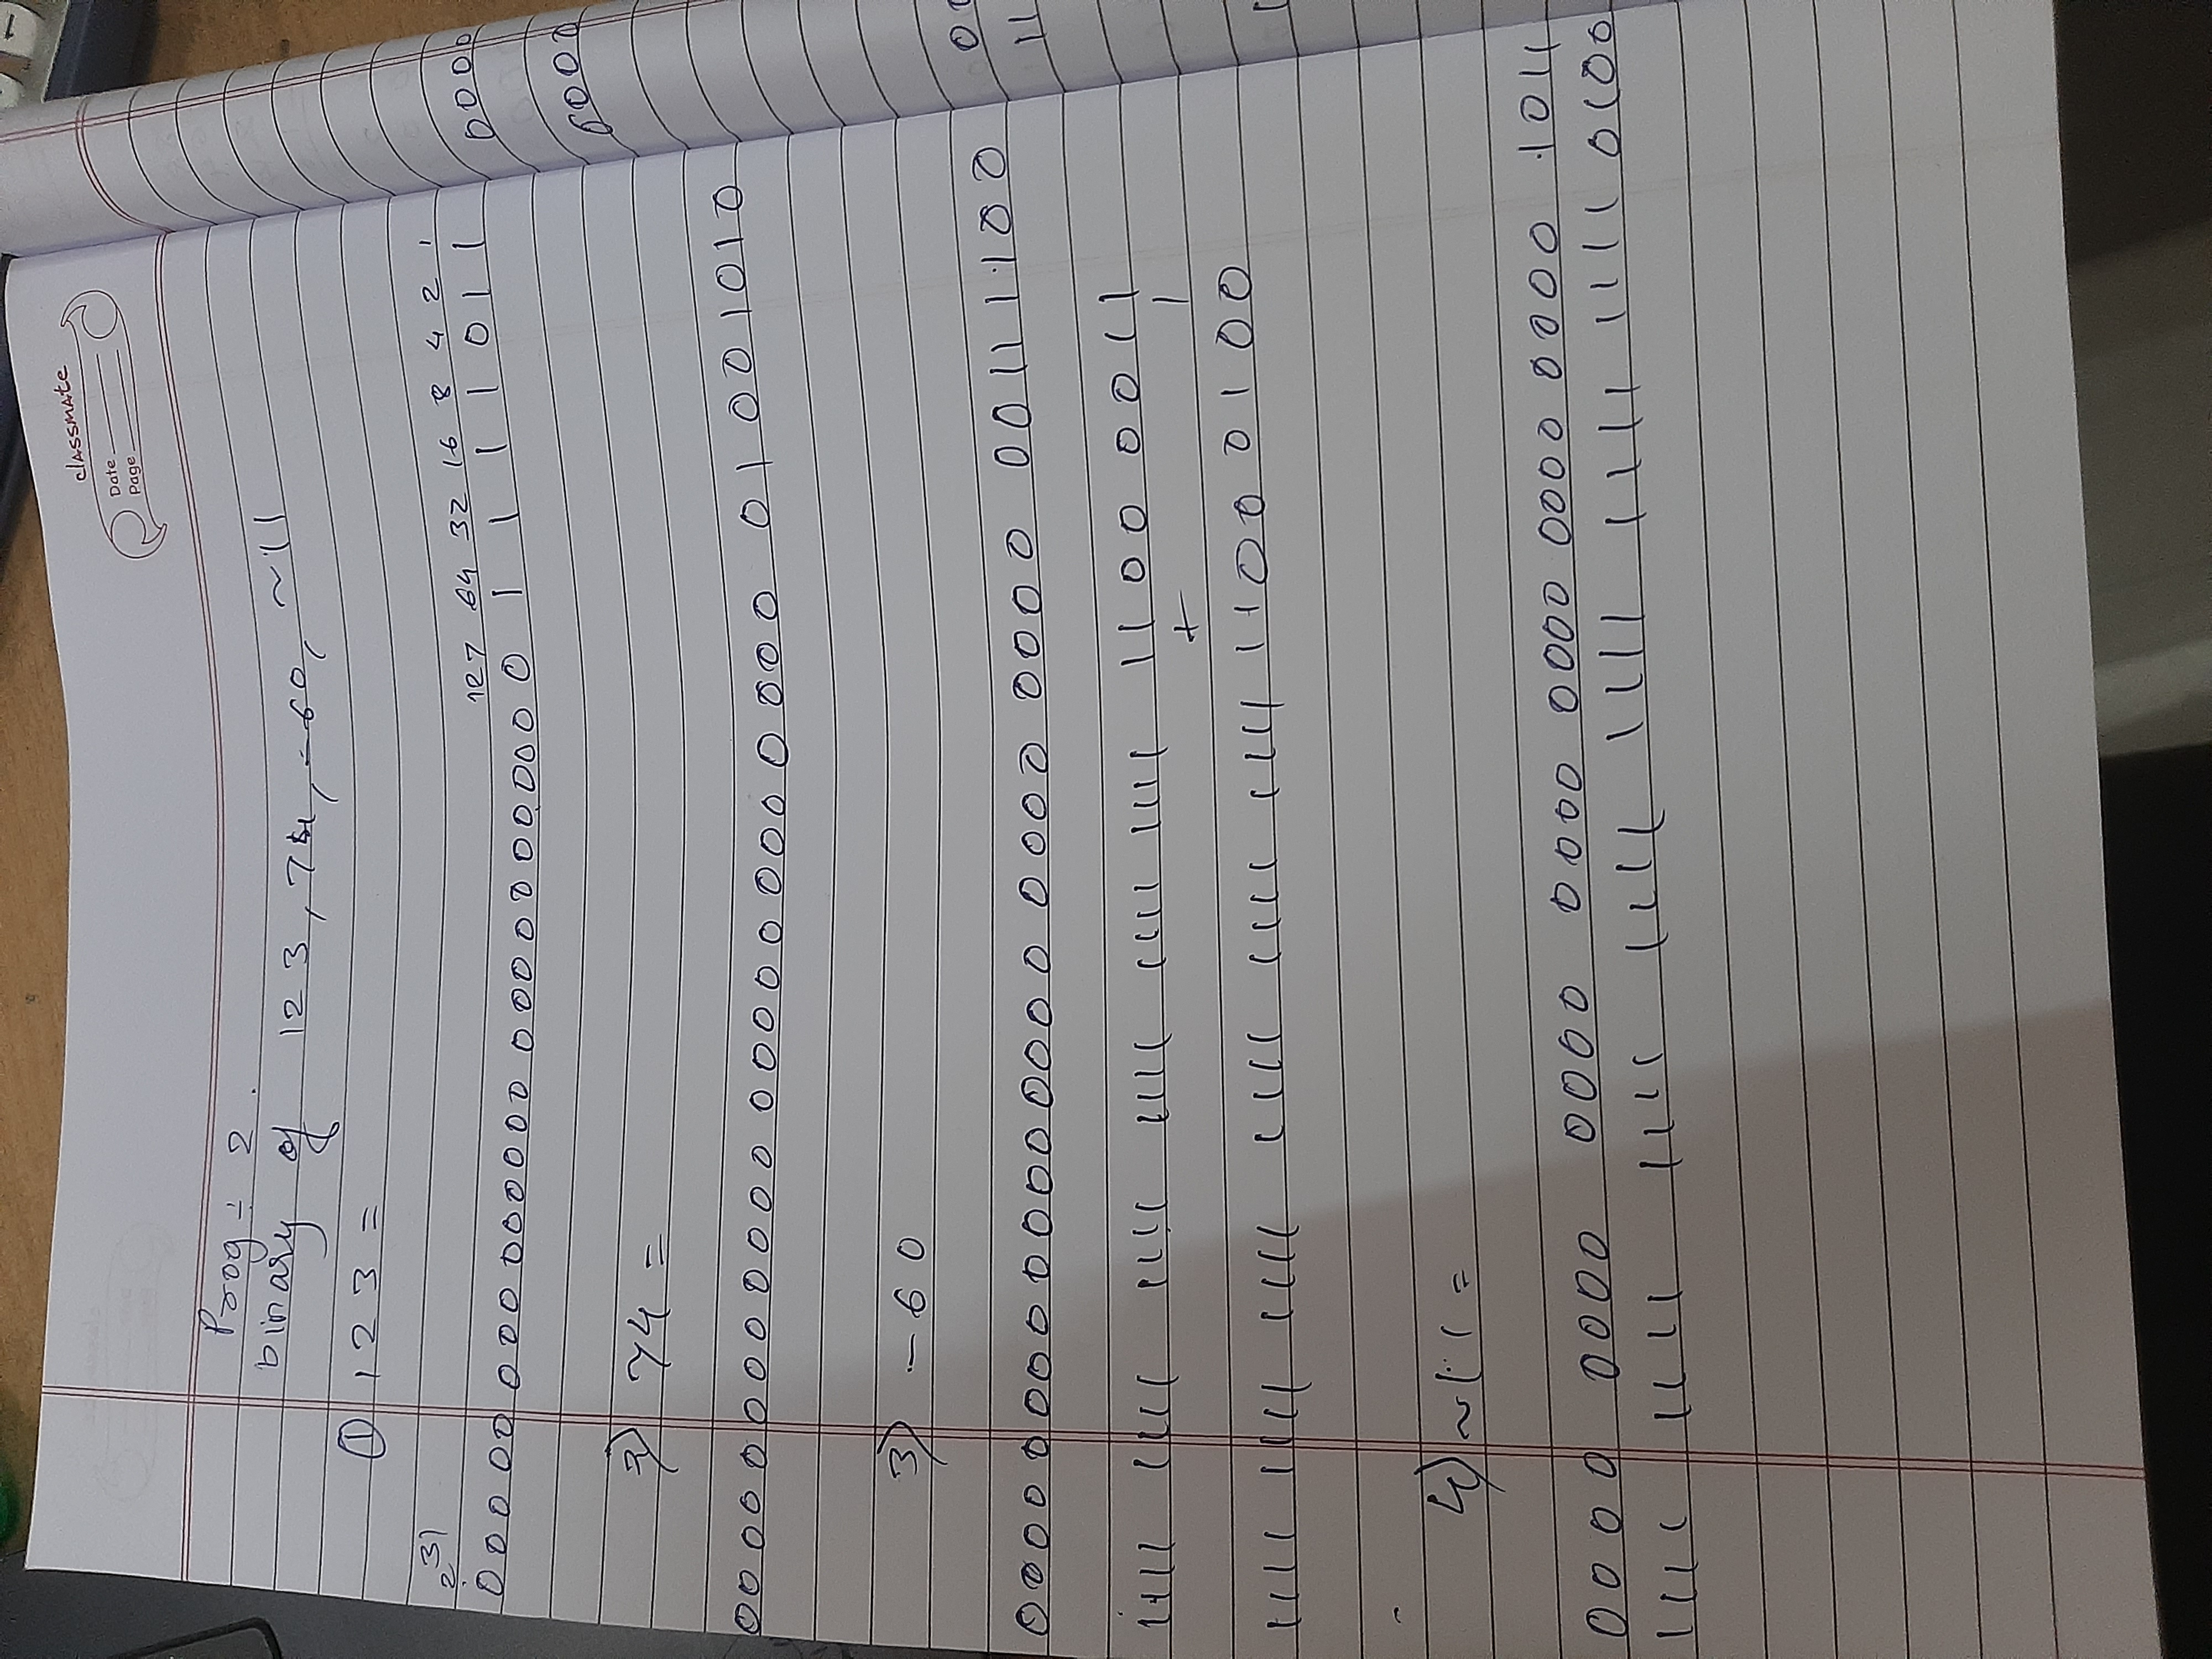 classmate
Date
Page
Prog ÷ 2.
binary of 123, 74, -60, ~11
① 123 =
2³¹ 127 64 32 16 8 4 2 1
00000 000 00000 000000000 0 1 1 1 1 0 1 1
2) 74 =
00 000 000 0000 0000 0000 0000 01001010
3) -60
00000 000 00000000 0000 0000 00111100
1111 1111 1111 1111 1111 1111 1100 0011
+ 1
1111 1111 1111 1111 1111 1111 1100 0100
4) ~11 =
0000 0000 0000 0000 0000 0000 0000 1011
1111 1111 1111 1111 1111 1111 1111 0100
0000
0000
00
11